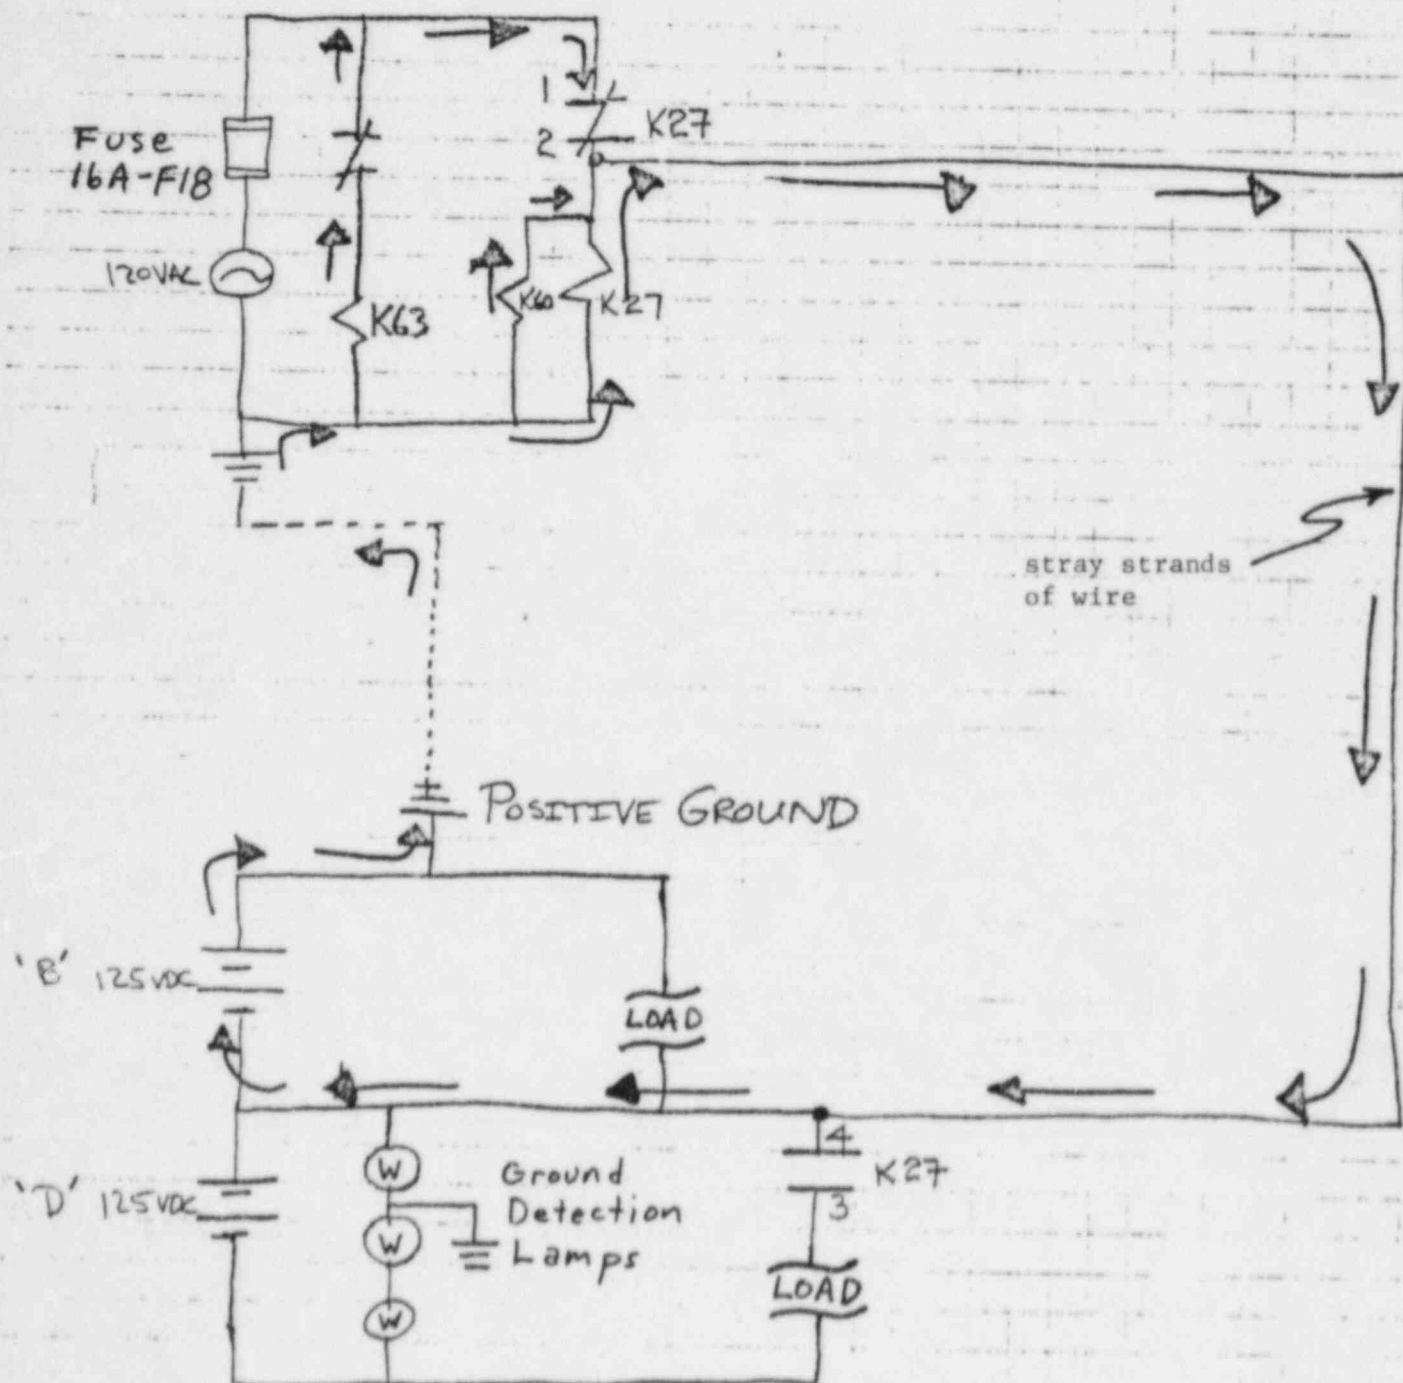 1
2
K27
Fuse
16A-F18
120VAC
K63
K60
K27
stray strands
of wire
POSITIVE GROUND
'B' 125VDC
LOAD
4
K27
3
'D' 125VDC
W
W
W
Ground
Detection
Lamps
LOAD